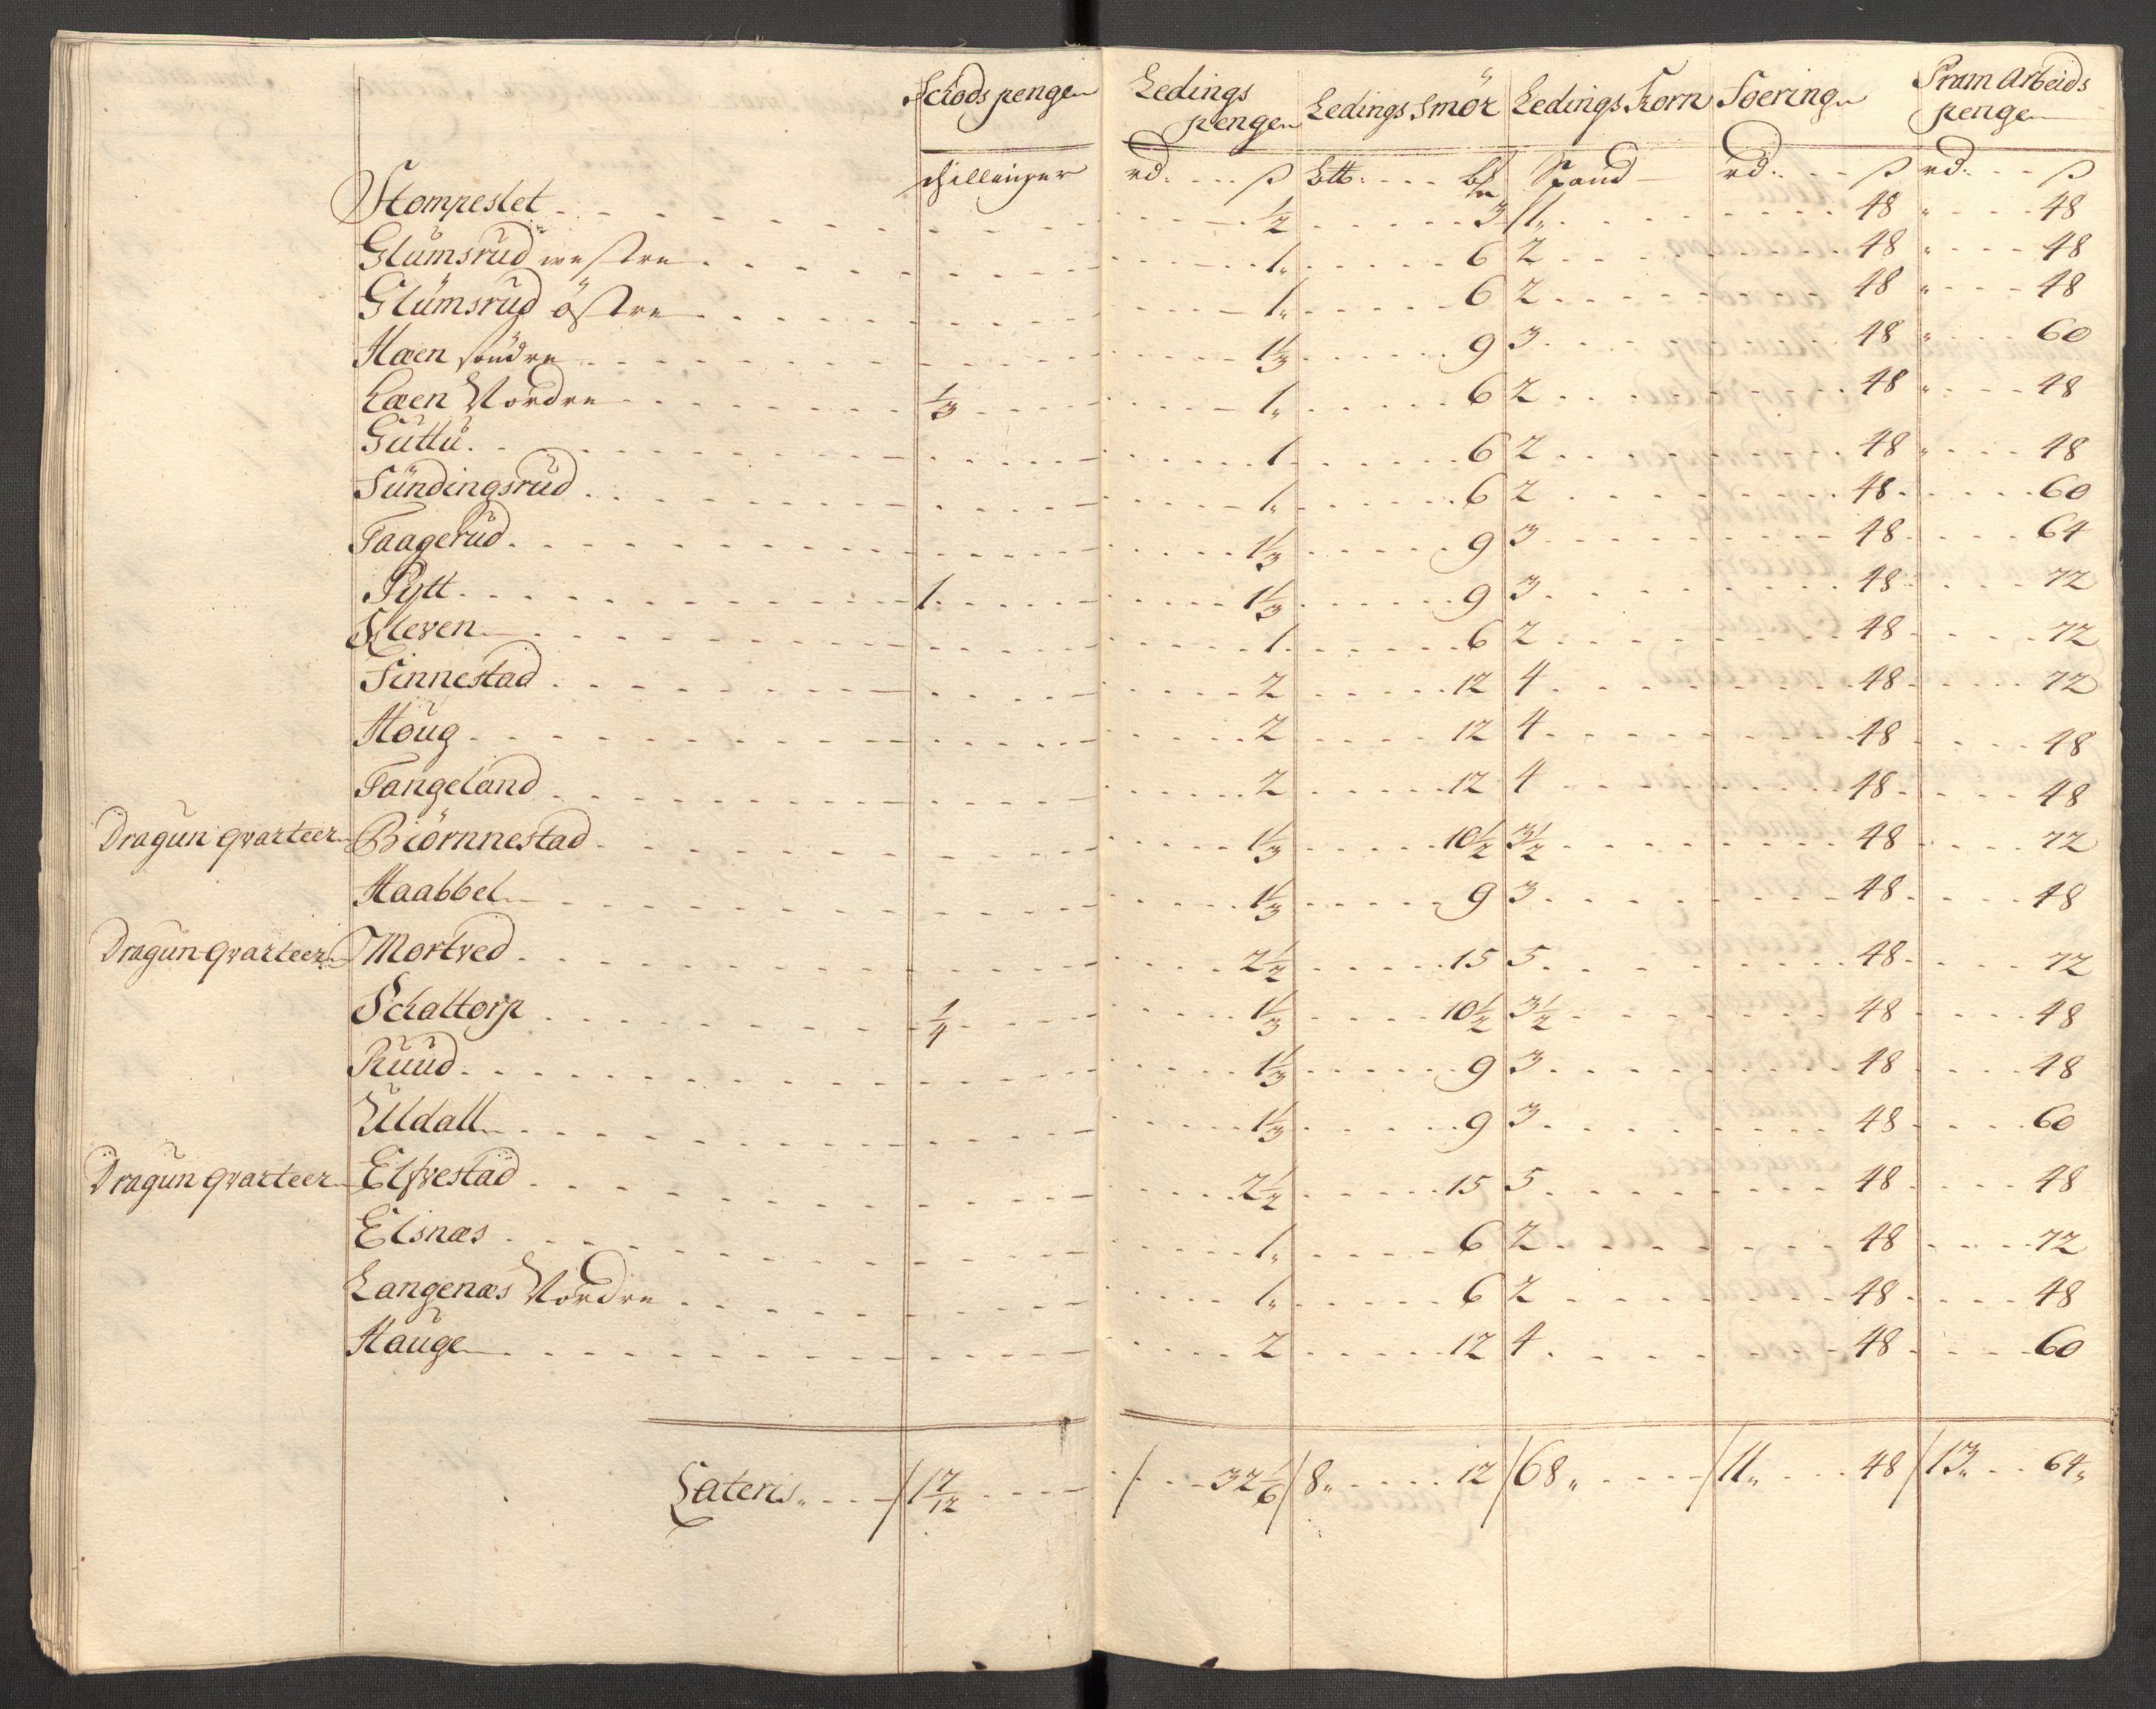 Schods pengen Ledings pengen Ledings Smör Ledings Korn Foeringn Pram Arbeids pengen
schillinger rd. ß btt. bs Spand rd. ß rd. ß
Stompeslet 1/2 3 1 48 48
Glumsrud westre 1 6 2 48 48
Glumsrud östre 1 6 2 48 48
Haen söndre 1 1/3 9 3 48 60
Haen Nordre 1/3 1 6 2 48 48
Guttu 1 6 2 48 48
Sündingsrud 1 6 2 48 60
Taagerud 1 1/3 9 3 48 64
Pytt 1 1 1/3 9 3 48 72
Kleven 1 6 2 48 72
Finnestad 2 12 4 48 72
Houg 2 12 4 48 48
Tangeland 2 12 4 48 48
Dragun qvarteer Biörnnestad 1 1/3 10 1/2 3 1/2 48 72
Haabbel 1 1/3 9 3 48 48
Dragun qvarteer Mortved 2 1/2 15 5 48 72
Schaltorp 1/4 1 1/3 10 1/2 3 1/2 48 48
Ruud 1 1/3 9 3 48 48
Uldall 1 1/3 9 3 48 60
Dragun qvarteer Elfvestad 2 1/2 15 5 48 48
Elsnæs 1 6 2 48 72
Langenæs Nordre 1 6 2 48 48
Hauge 2 12 4 48 60
Lateris 1 7/12 32 1/6 8 12 68 11 48 13 64